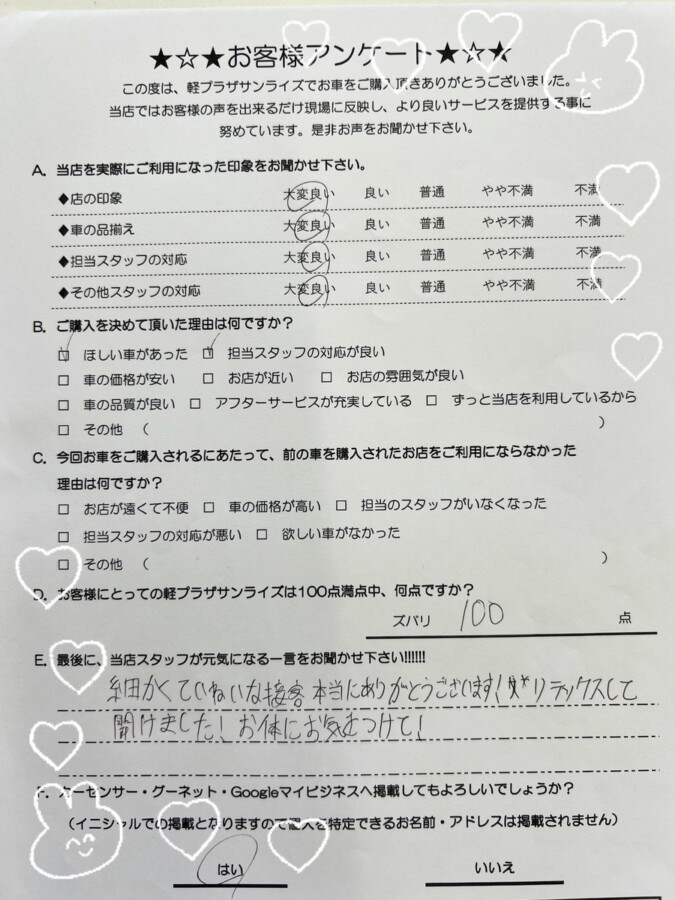 ★☆★お客様アンケート★☆★
この度は、軽プラザサンライズでお車をご購入頂きありがとうございました。
当店ではお客様の声を出来るだけ現場に反映し、より良いサービスを提供する事に
努めています。是非お声をお聞かせ下さい。
A. 当店を実際にご利用になった印象をお聞かせ下さい。
◆店の印象 大変良い 良い 普通 やや不満 不満
◆車の品揃え 大変良い 良い 普通 やや不満 不満
◆担当スタッフの対応 大変良い 良い 普通 やや不満 不満
◆その他スタッフの対応 大変良い 良い 普通 やや不満 不満
B. ご購入を決めて頂いた理由は何ですか？
☑ ほしい車があった ☑ 担当スタッフの対応が良い
□ 車の価格が安い □ お店が近い □ お店の雰囲気が良い
□ 車の品質が良い □ アフターサービスが充実している □ ずっと当店を利用しているから
□ その他 （ ）
C. 今回お車をご購入されるにあたって、前の車を購入されたお店をご利用にならなかった
理由は何ですか？
□ お店が遠くて不便 □ 車の価格が高い □ 担当のスタッフがいなくなった
□ 担当スタッフの対応が悪い □ 欲しい車がなかった
□ その他 （ ）
D. お客様にとっての軽プラザサンライズは100点満点中、何点ですか？
ズバリ 100 点
E. 最後に、当店スタッフが元気になる一言をお聞かせ下さい!!!!!!
細かくていねいな接客本当にありがとうございます！リラックスして
聞けました！お体にお気をつけて！
F. カーセンサー・グーネット・Googleマイビジネスへ掲載してもよろしいでしょうか？
（イニシャルでの掲載となりますので個人を特定できるお名前・アドレスは掲載されません）
はい いいえ